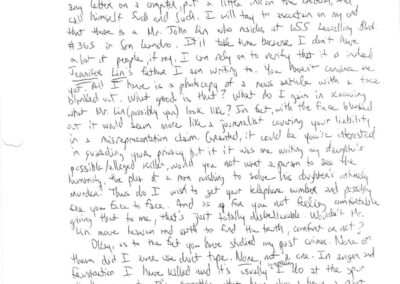 any letter on a computer, put a little ink on the bottom, and
call himself such and such. I will try to ascertain on my end
that there is a Mr. John Lin who resides at 655 Lewelling Blvd.
#365 in San Leandro. It'll take time because I don't have
a lot of people, if any, I can rely on to verify that it is indeed
Jennifer Lin's father I am writing to. You haven't convinced me
yet. All I have is a photocopy of a news article with a face
blanked out. What good is that? What do I gain in knowing
what Mr. Lin (possibly you) look like? In fact, with the face blanked
out it would seem more like a journalist covering your liability
in a misrepresentation claim. Granted, it could be you're interested
in guarding your privacy but if it was me writing my daughter's
possible/alleged killer, would you not want a person to see the
humanity, the plea of a man wishing to solve his daughter's untimely
murder? Thus do I wish to get your telephone number and possibly
see you face to face. And as for you not feeling comfortable
giving that to me, that's just totally disbelievable. Wouldn't Mr.
Lin move heaven and earth to find the truth, comfort or not?
Okay, as to the fact you have studied my past crimes. None of
them did I ever use duct tape. None, not a one. In anger and
frustration I have killed and it's usually I do at the spur